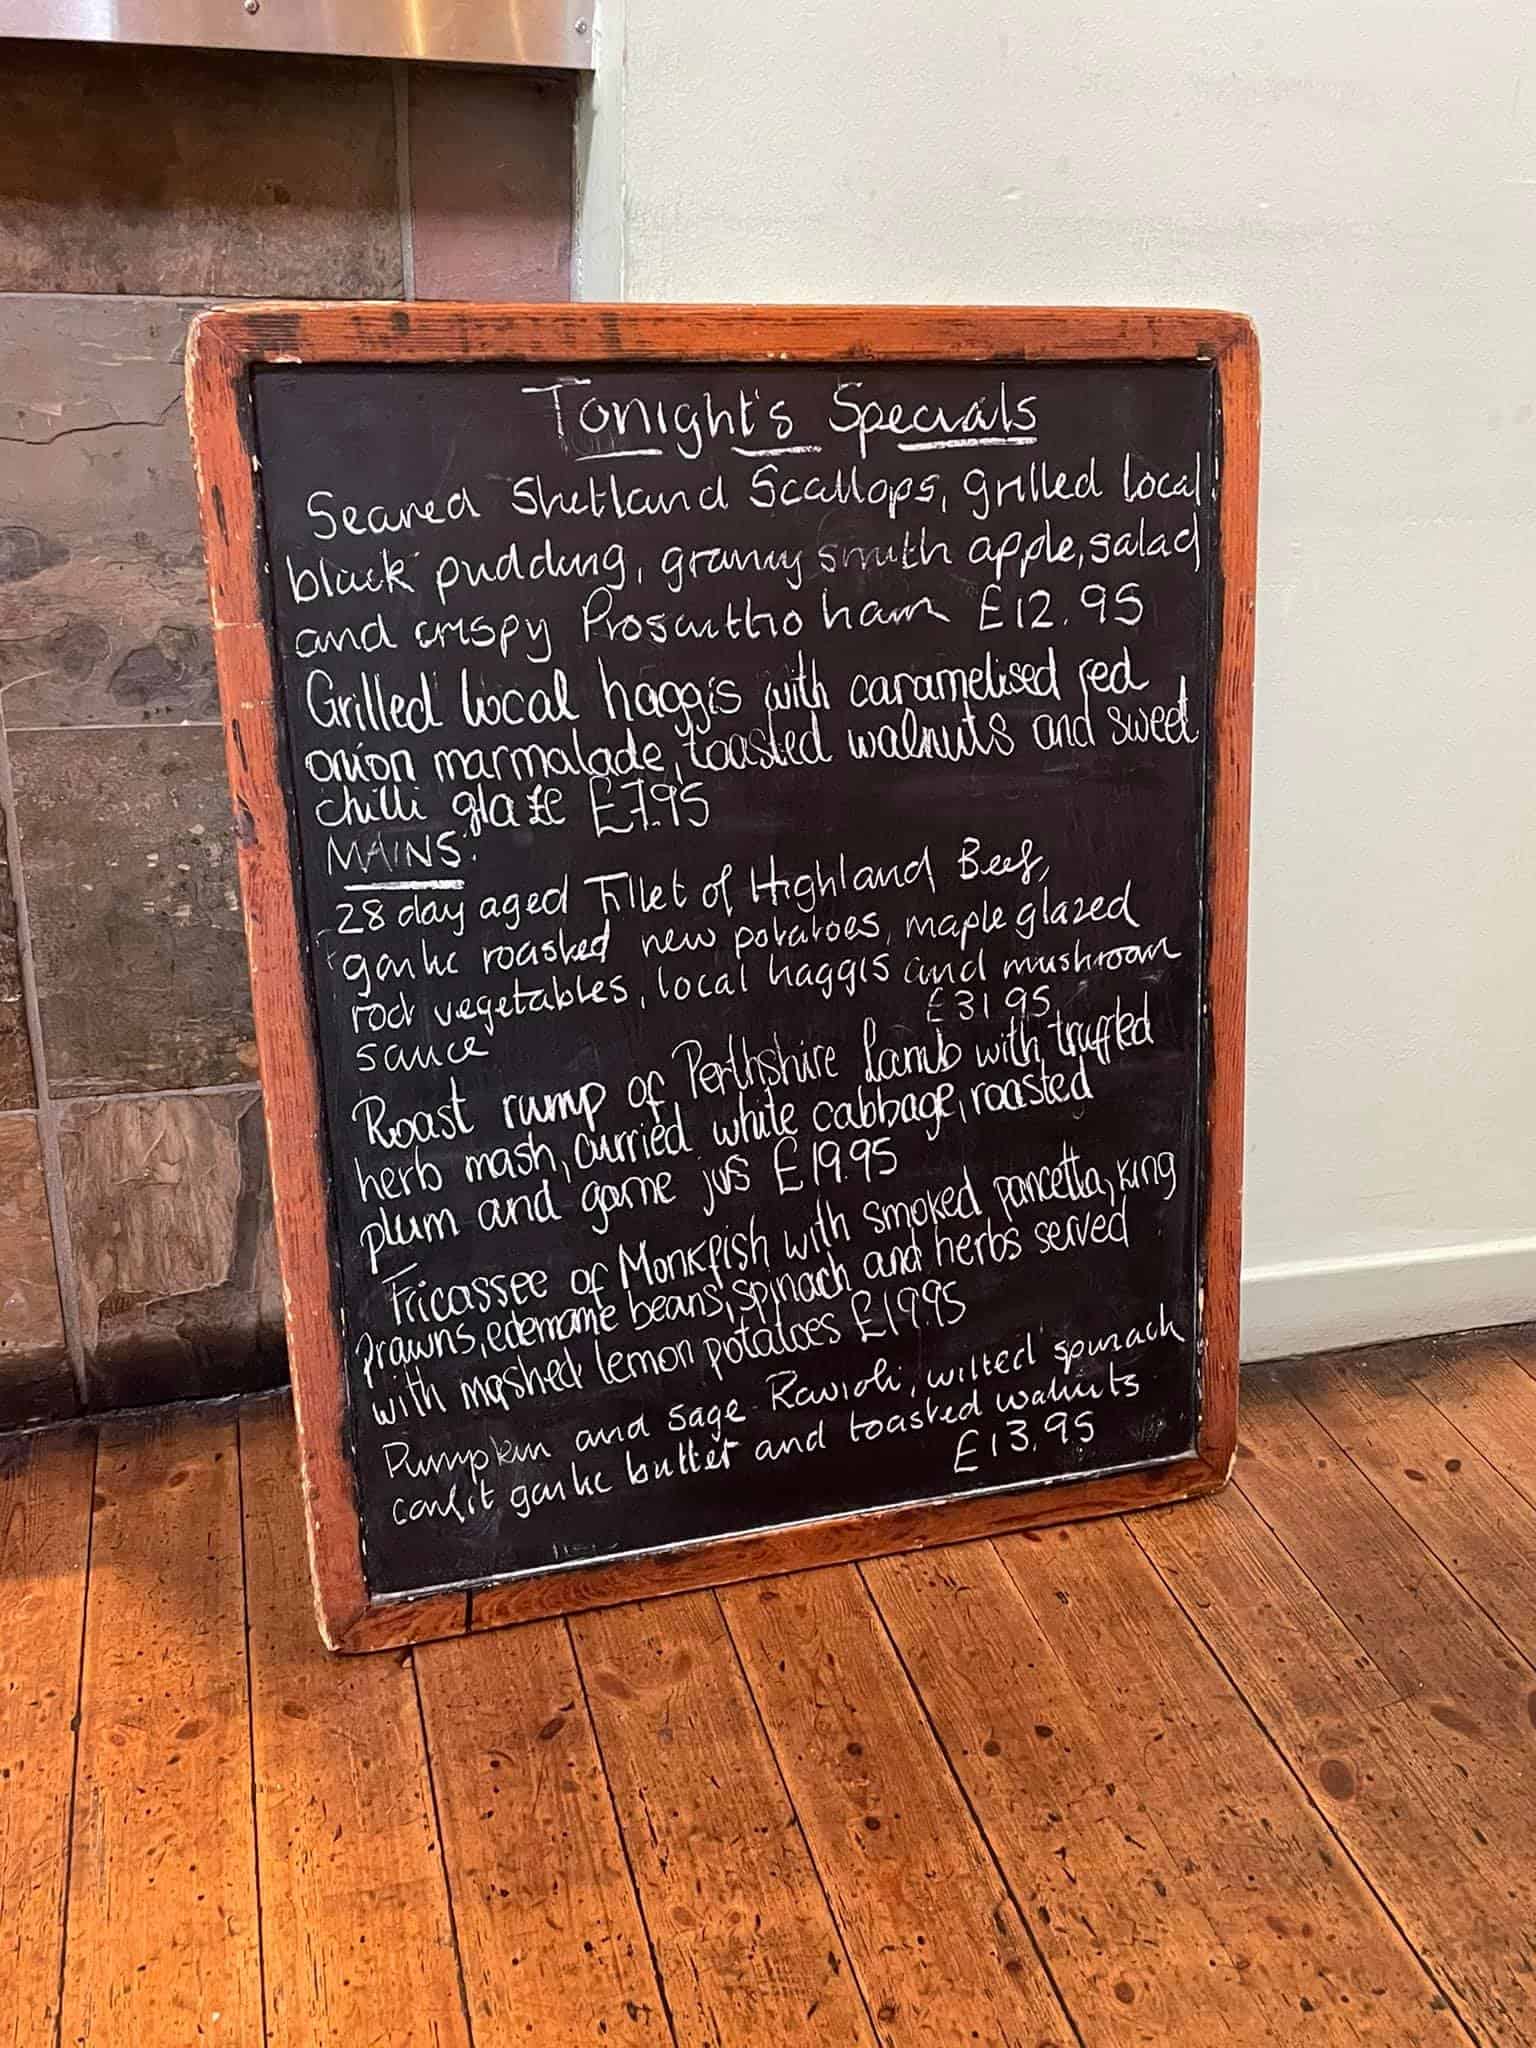 Tonight's Specials
Seared Shetland Scallops, grilled local
black pudding, granny smith apple, salad
and crispy Prosciuttho ham £12.95
Grilled local haggis with caramelised red
onion marmalade, toasted walnuts and sweet
chilli glaze £7.95
MAINS:
28 day aged Fillet of Highland Beef,
garlic roasted new potatoes, maple glazed
root vegetables, local haggis and mushroom
sauce £31.95
Roast rump of Perthshire Lamb with truffled
herb mash, curried white cabbage, roasted
plum and game jus £19.95
Fricassee of Monkfish with smoked pancetta, king
prawns, edemame beans, spinach and herbs served
with mashed lemon potatoes £19.95
Pumpkin and Sage Ravioli, wilted spinach
confit garlic butter and toasted walnuts
£13.95